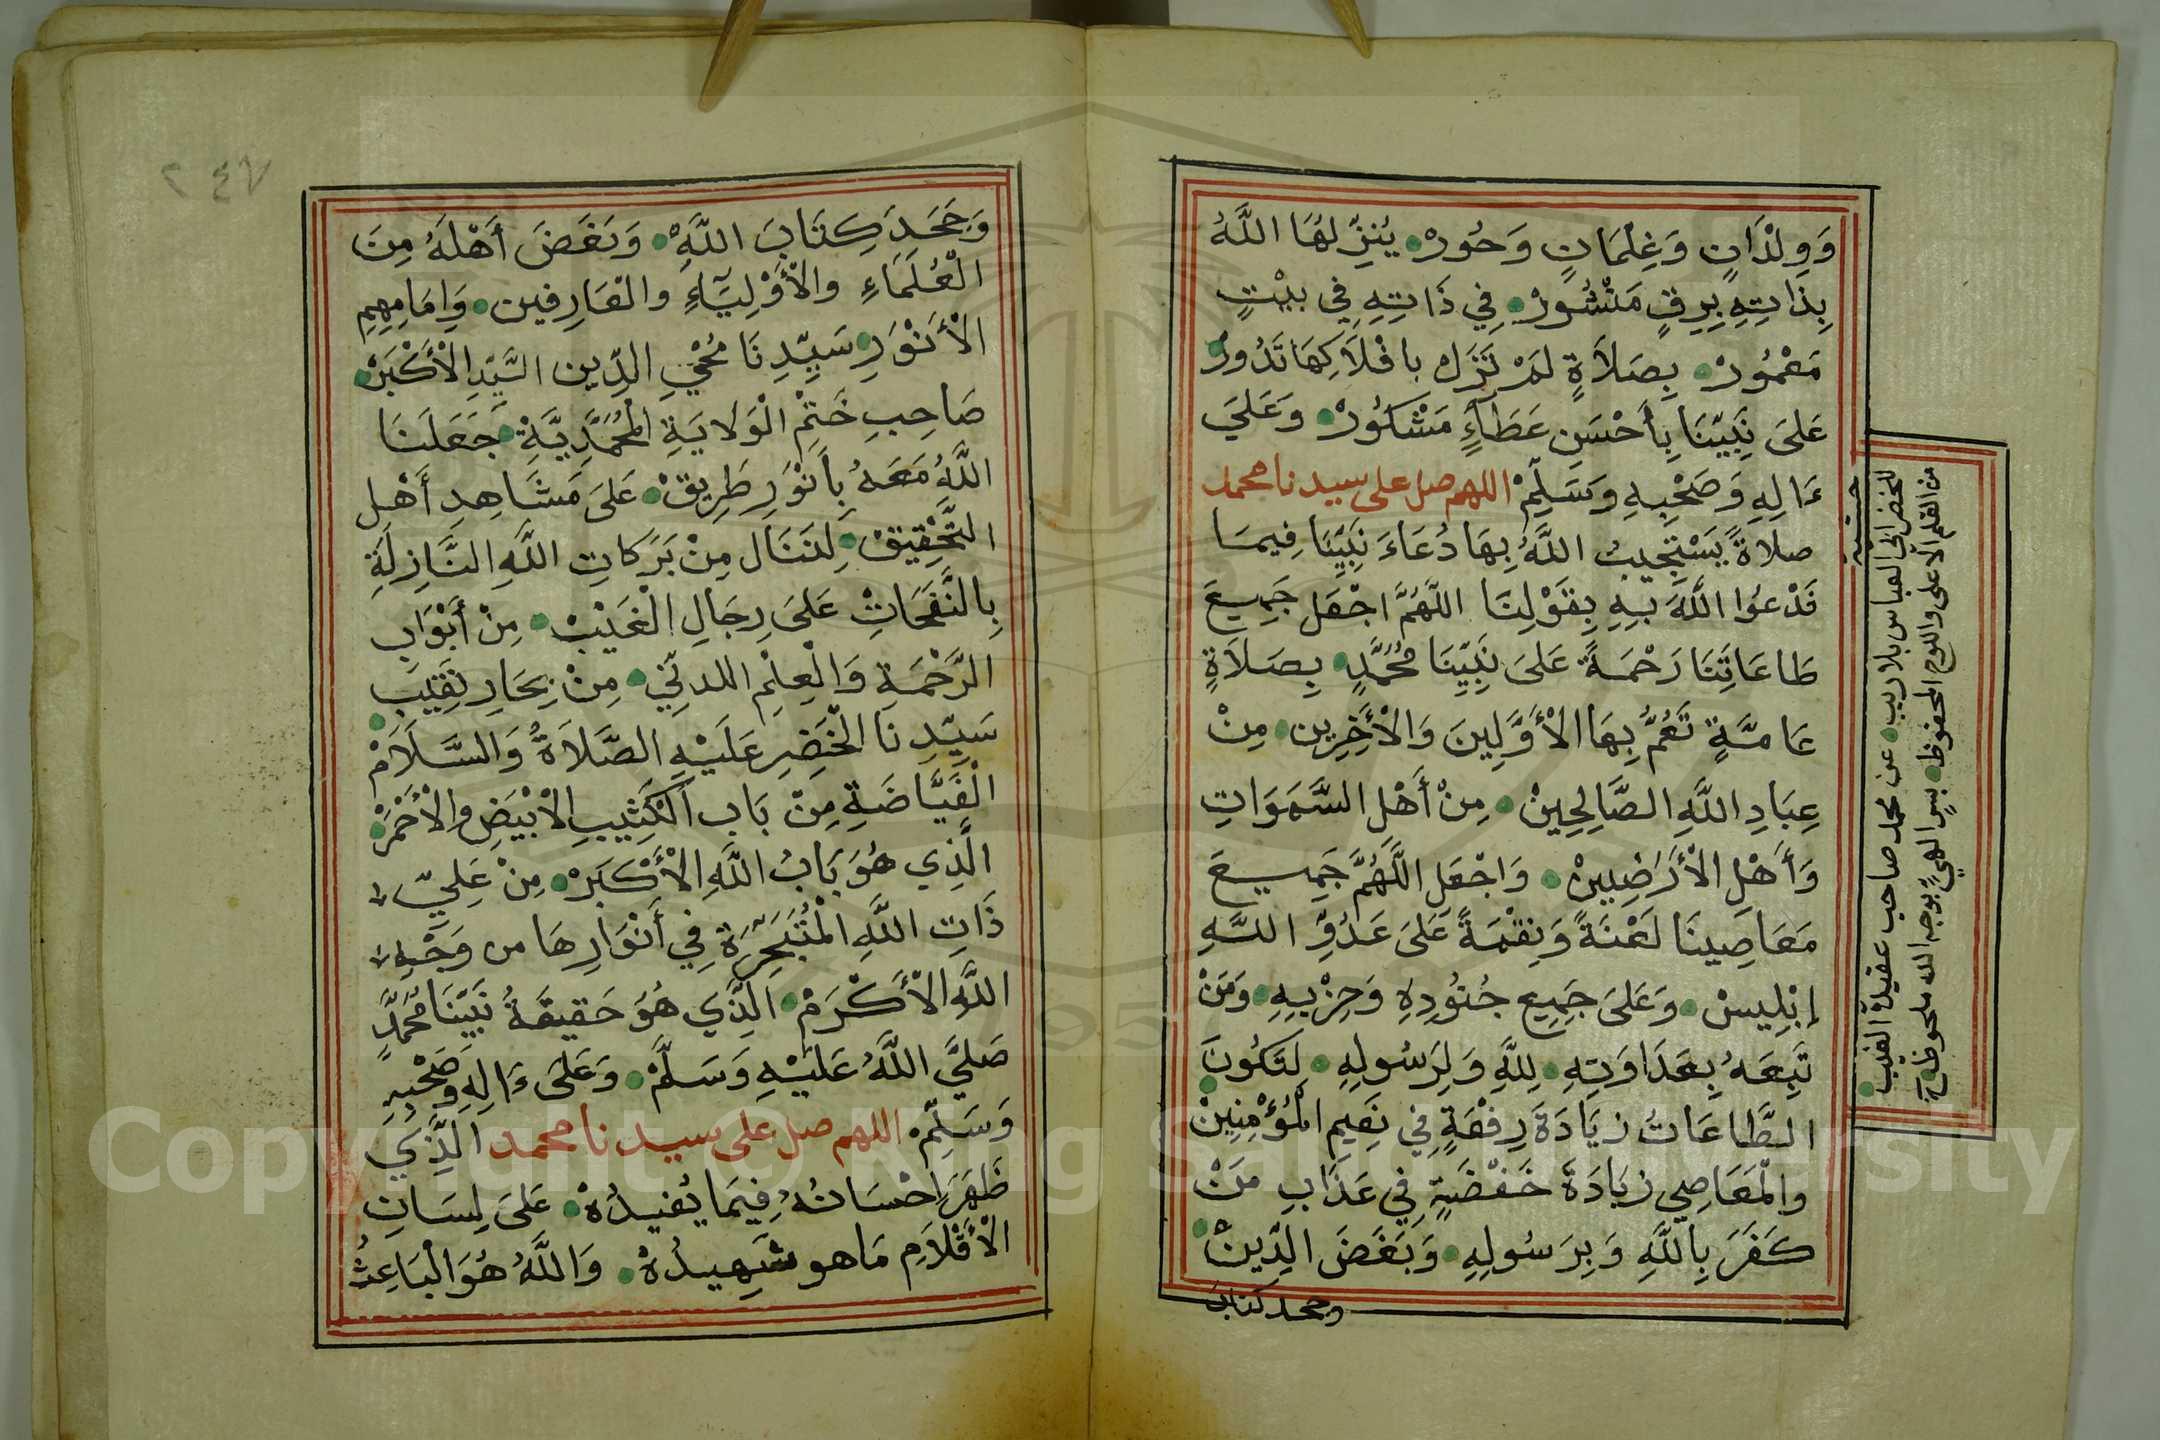 وَوِلْدَانٍ وَغِلْمَانٍ وَحُورْ • يُنَزِّلُهَا اللَّهُ
بِذَاتِهِ بِرِقٍ مَنْشُورْ • فِي ذَاتِهِ فِي بَيْتٍ
مَعْمُورْ • بِصَلَاةٍ لَمْ تَزَلْ بِافْلَاكِهَا تَدُورْ •
عَلَى نَبِيِّنَا بِأَحْسَنِ عَطَآءٍ مَشْكُورْ • وَعَلَى
ءَالِهِ وَصَحْبِهِ وَسَلِّمْ اللهم صل على سيدنا محمد
صلاةً يَسْتَجِيبُ اللَّهُ بِهَا دُعَاءَ نَبِيِّنَا فِيمَا
نَدْعُوا اللَّهَ بِهِ بِقَوْلِنَا اللَّهُمَّ اجْعَل جَمِيعَ
طَاعَاتِنَا رَحْمَةً عَلَى نَبِيِّنَا مُحَمَّدٍ • بِصَلَاةٍ
عَامَّةٍ تَعُمُّ بِهَا الْأَوَّلِينَ وَالْأَخِرِين • مِنْ
عِبَادِ اللَّهِ الصَّالِحِينْ • مِنْ أَهْلِ السَّمَوَاتِ
وَأَهْلِ الْأَرَضِيينْ • وَاجْعَلِ اللَّهُمَّ جَمِيعَ
مَعَاصِينَا لَعْنَةً وَنِقْمَةً عَلَى عَدُوِّ اللَّهِ
إِبْلِيسْ • وَعَلَى جَمِيعِ جُنُودِهِ وَحِزْبِهِ • وَمَنْ
تَبِعَهُ بِعَدَاوَتِهِ • لِلَّهِ وَلِرَسُولِهِ • لِتَكُونَ
الطَّاعَاتُ زِيَادَةَ رِفْعَةٍ فِي نَعِيمِ الْمُؤْمِنِينْ •
والْمَعَاصِي زِيَادَةَ خَفْضَةٍ فِي عَذَابِ مَنْ
كَفَرَ بِاللَّهِ وَبِرَسُولِهِ • وَبَغَضَ الدِّينْ •
وجحد كتاب
للخضر أبى العباس بلا ريب • عن محمد صاحب عقيدة الغيب •
من القلم الأعلى واللوح المحفوظ • بسر الهيٍّ بوجه الله ملحوظ
٢٤٧
وَجَحَدَ كِتَابَ اللَّهِ • وَبَغَضَ أَهْلَهُ مِنَ
الْعُلَمَاءِ والْأَوْلِيَآءِ والْعَارِفين • وَاِمَامِهِمِ
الْأَنْوَرِ • سَيِّدِنَا مُحْيِ الدِّينِ السَّيِّدِ الْأَكْبَرْ •
صَاحِبِ خَتْمِ الْوَلَايَةِ الْمُحَمَّدِيَّةِ • جَعَلَنَا
اللَّهُ مَعَهُ بِأَنْوَرِ طَرِيقْ • عَلَى مَشَاهِدِ أَهْلِ
التَّحْقِيقْ • لِنَنَال مِنْ بَرَكَاتِ اللَّهِ النَّازِلَةِ
بِالنَّفَحَاتْ عَلَى رِجَالِ الْغَيْبْ • مِنْ أَبْوَابِ
الرَّحْمَةِ وَالْعِلْمِ اللدنِّي • مِنْ بِحَارِ نَقِيبِ •
سَيِّدِنَا الْخَضِرِ عَلَيْهِ الصَّلَاةُ وَالسَّلَامْ
الْفَيَّاضَةِ مِنْ بَابِ الْكَثِيبِ الْاَبْيَضِ والْأَحْمَرْ •
الَّذِي هُوَ بَابُ اللَّهِ الْأَكْبَرْ • مِنْ عَلِيِّ
ذَاتِ اللَّهِ الْمُتَبَحِّرَةِ فِي أَنْوَارِهَا من وَجْهِ
اللَّهِ الْأَكْرَمْ • الَّذِي هُوَ حَقِيقَةُ نَبِيِّنَا مُحَمَّدٍ
صَلَّى اللَّهُ عَلَيْهِ وَسَلَّمْ • وَعَلَى ءَالِهِ وَصَحْبِهِ
وَسَلِّمْ اللهم صل على سيدنا محمد الَّذِي
ظَهَرَ اِحْسَانُهُ فِيمَا يُفيدُهْ • عَلَى لِسَانِ
الْأَقْلَامِ مَا هو شَهِيدُهْ • وَاللَّهُ هُوَ الْبَاعِثُ